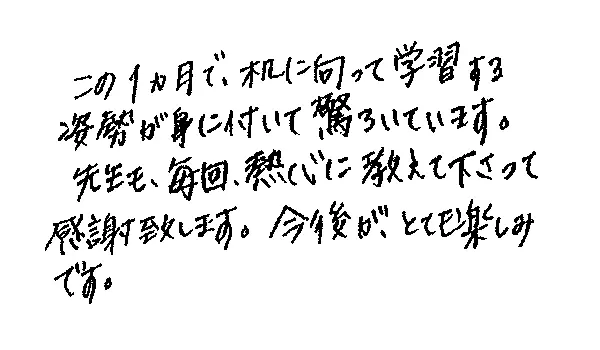 この1ヵ月で、机に向って学習する
姿勢が身に付いて驚ろいています。
先生も、毎回、熱心に教えて下さって
感謝致します。今後が、とても楽しみ
です。